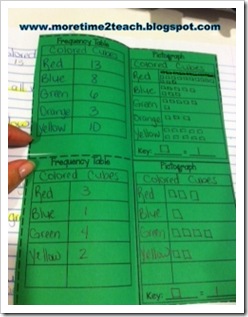 www.moretime2teach.blogspot.com
Frequency Table
Colored Cubes
Red 13
Blue 8
Green 6
Orange 3
Yellow 10
Pictograph
Colored Cubes
Red
Blue
Green
Orange
Yellow
Key: = 1
Frequency Table
Colored Cubes
Red 3
Blue 1
Green 4
Yellow 2
Pictograph
Colored Cubes
Red
Blue
Green
Yellow
Key: = 1